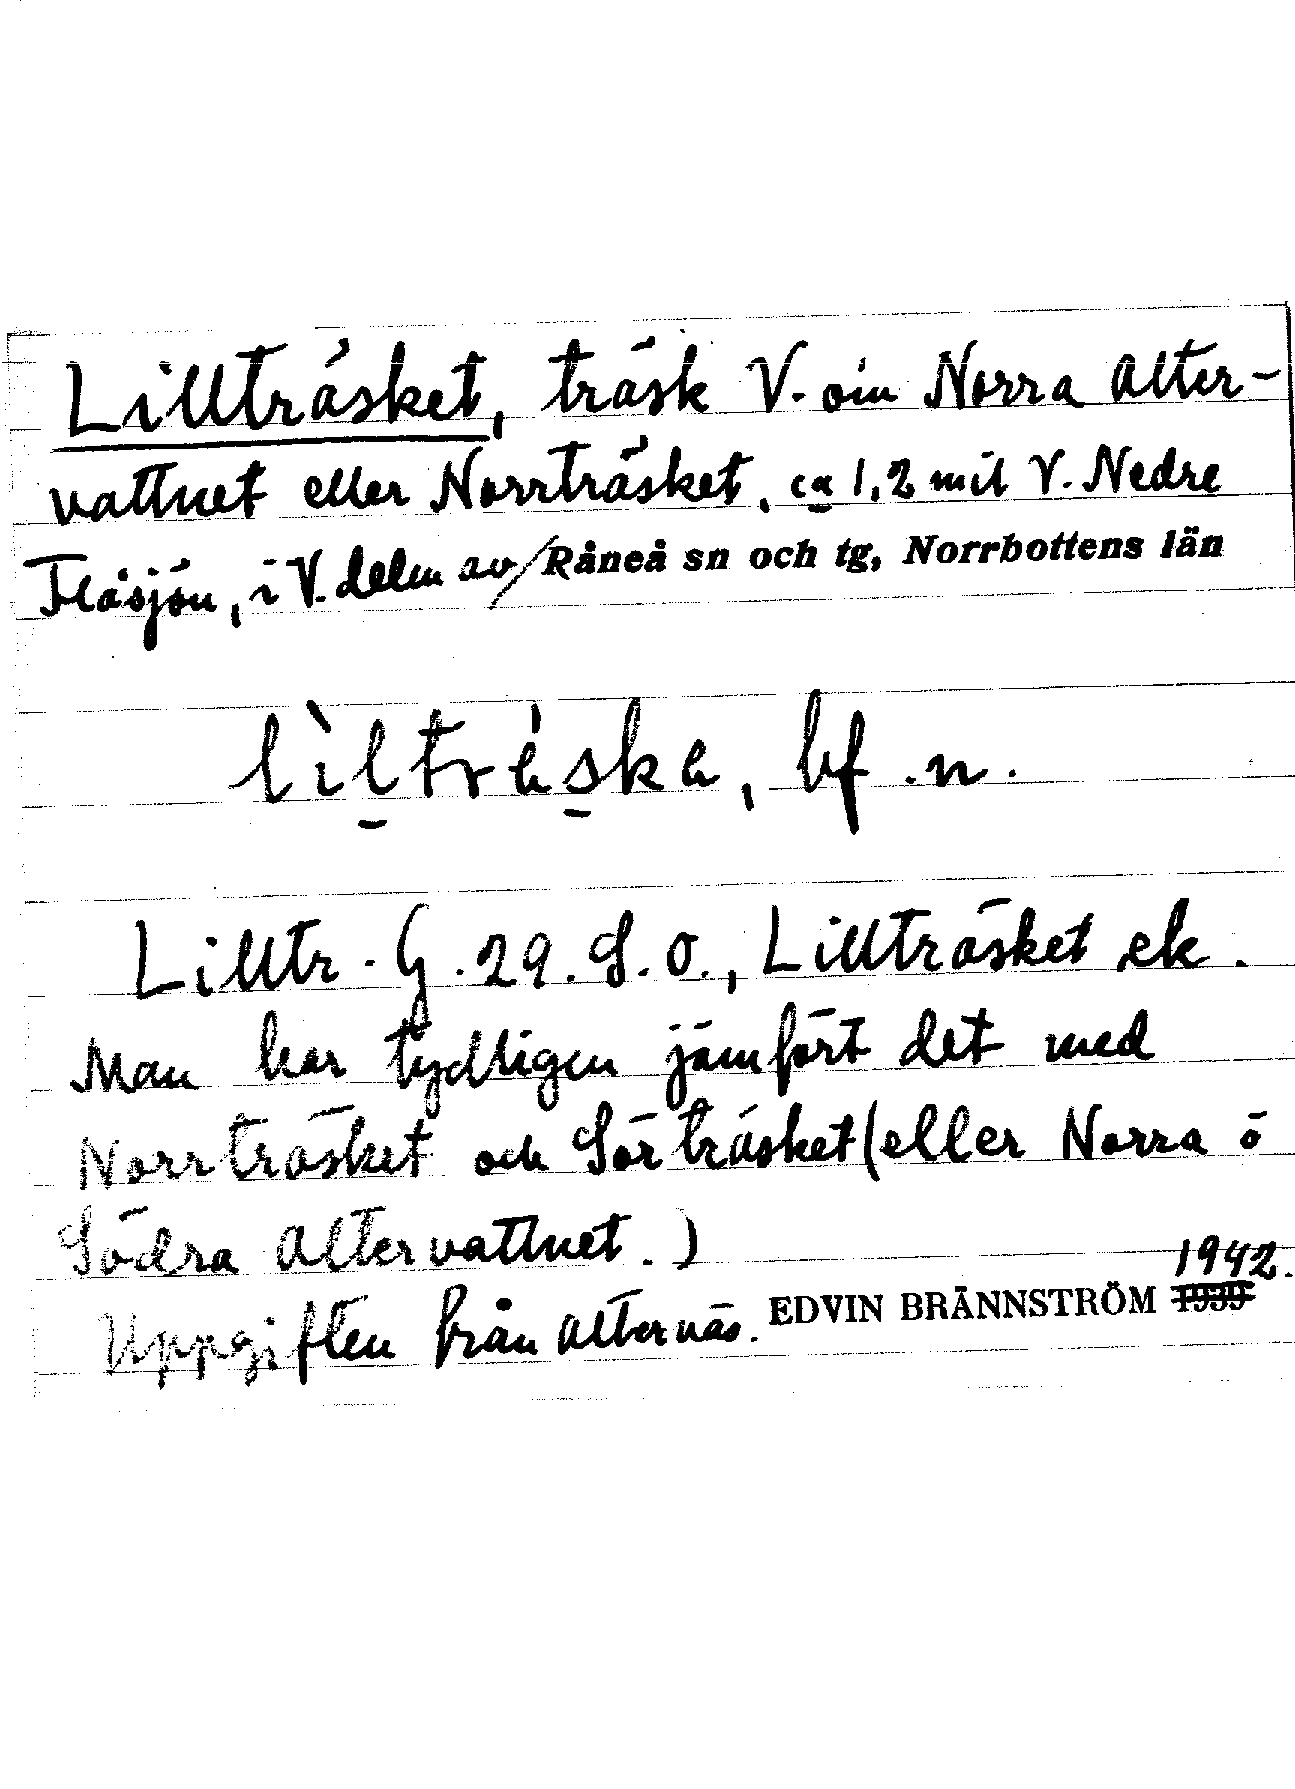 Lillträsket, träsk V. om Norra Alter-
vattnet eller Norrträsket, ca 1,2 mil V. Nedre
Flåsjön, i V. delen av / Råneå sn och tg, Norrbottens län
lìl̠trá̈s̠ka, bf. n.
Lilltr. G. 29. S. O., Lillträsket ek.
Man har tydligen jämfört det med
Norrträsket och Sörträsket (eller Norra o
Södra Altervattnet.)
Uppgiften från Alternäs. EDVIN BRÄNNSTRÖM 1942.